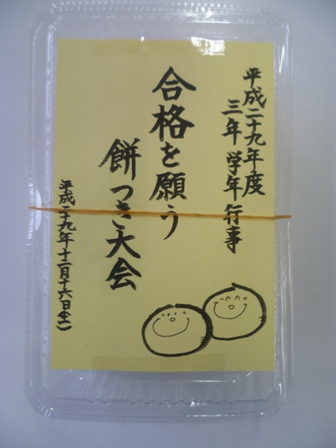 平成二十九年度
三年 学年行事
合格を願う
餅つき大会
平成二十九年十二月十六日(土)